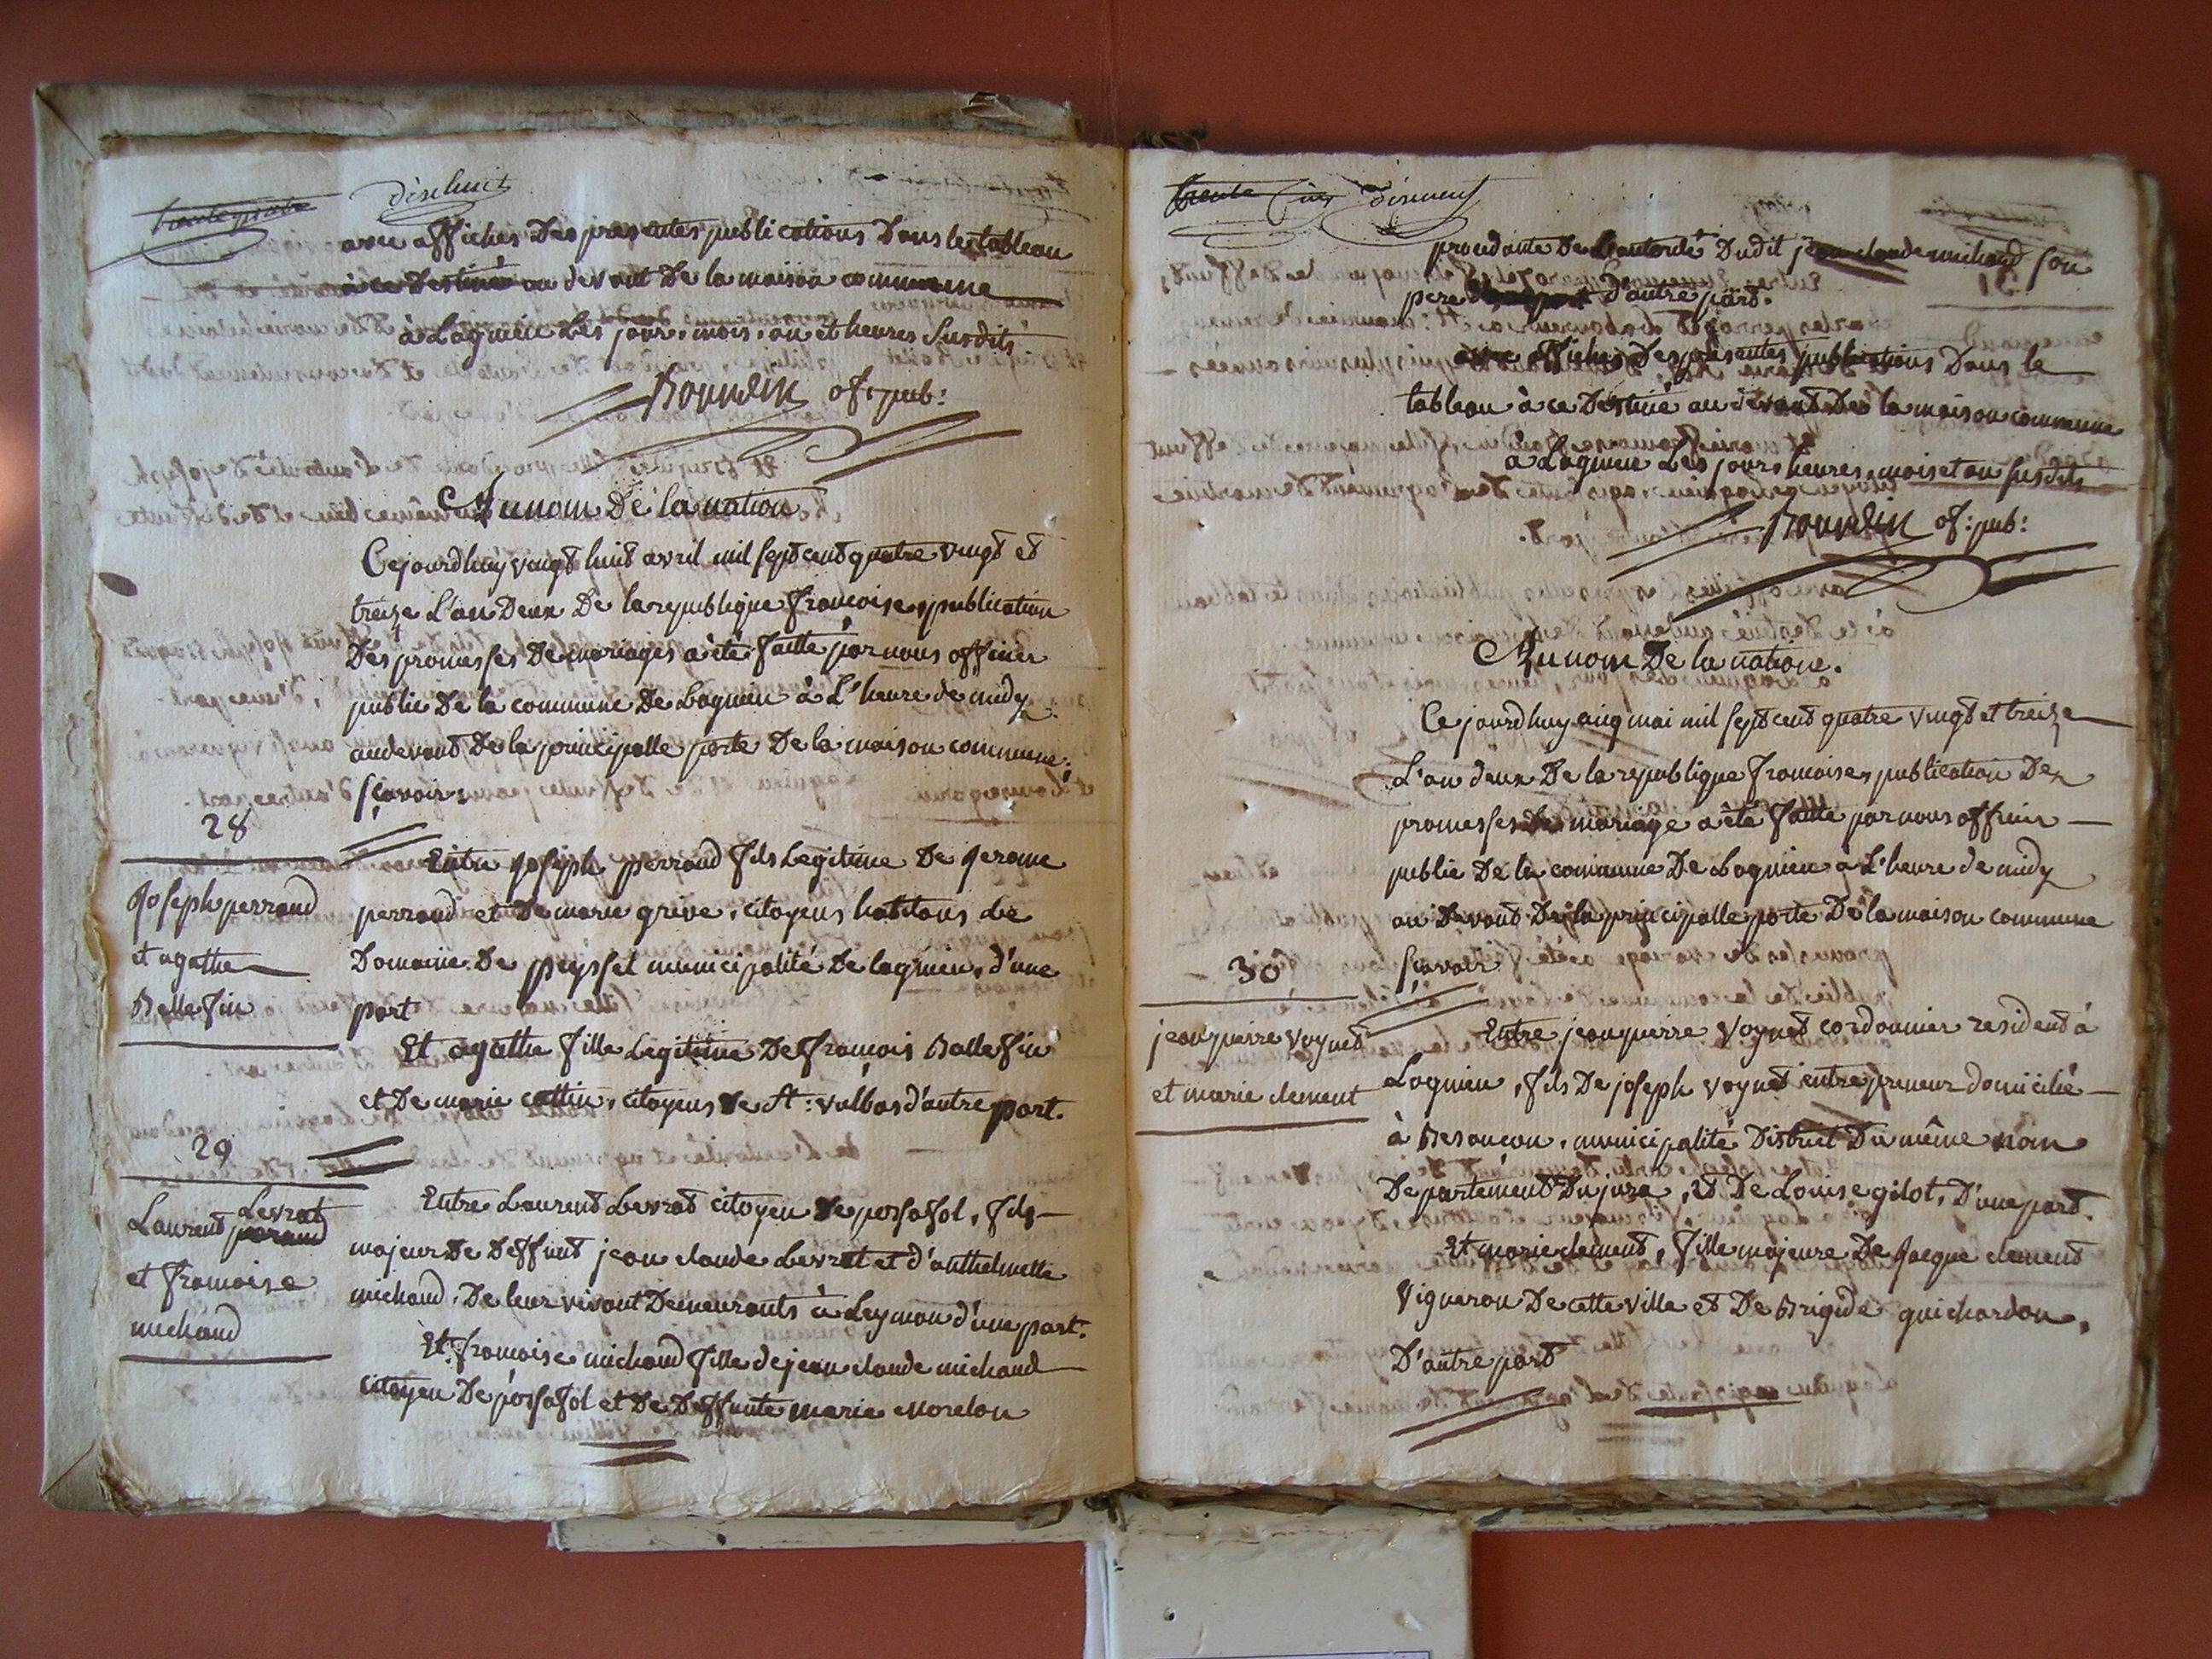 trentequatre dixhuit
avec affiches Des presentes publications Dans le tableau
à ce Destiné au devant De la maison commune
à Lagnieu Les jour, mois, an et heures Susdits
Bourdin of: pub:
Au nom De la nation
Cejourdhuy vingt huit avril mil sept cent quatre vingt et
treize L'an Deux De la republique francoise, publication
Des promesses De mariages a été faitte par nous officier
public De la commune De Lagnieu à L'heure de midy
audevant De la principalle porte De la maison commune,
sçavoir.
28
Joseph perrand
et agathe
Bellefin
Entre Joseph perrand fils Legitime De Jerome
perrand et De marie grive, citoyens habitans Le
Domaine De peyssel municipalité De lagnieu, d'une
part
Et agathe fille Legitime De françois Ballefin
et De marie cattin, citoyens De St: vulbas d'autre part.
29
Levrat
Laurent perrand
et francoise
michaud
Entre Laurent Levrat citoyen De posafol, fils
majeur De Deffunt jean claude Levrat et d'anthelmette
michaud, De leur vivant Demeurants à Leyman d'une part.
Et francoise michaud fille de jean claude michaud
citoyen De posafol et De Deffunte marie morelon
trente Cinq dixneuf
procedante De L'autorité Dudit jean claude michaud son
pere d'autre part.
avec affiches Des presentes publications Dans le
tableau à ce Destiné au devant De la maison commune
à Lagnieu Les jours heures, mois et an susdits
Bourdin of: pub:
Au nom De la nation.
Cejourdhuy cinq mai mil sept cent quatre vingt et treize
L'an deux De la republique francoise, publication Des
promesses De mariage a été faitte par nous officier
public De la commune De Lagnieu a L'heure de midy
au Devant De la principalle porte De la maison commune
sçavoir
30
jean pierre voynet
et marie clement
Entre jean pierre voynet cordonnier resident à
Lagnieu, fils De joseph voynet entrepreneur domicilié
à Besançon, municipalité District Du même nom
Departement Du jura, et De Louise gilot, D'une part.
Et marie clement, fille majeure De Jacque clement
vigneron De cette ville et De Brigide guichardon,
D'autre part